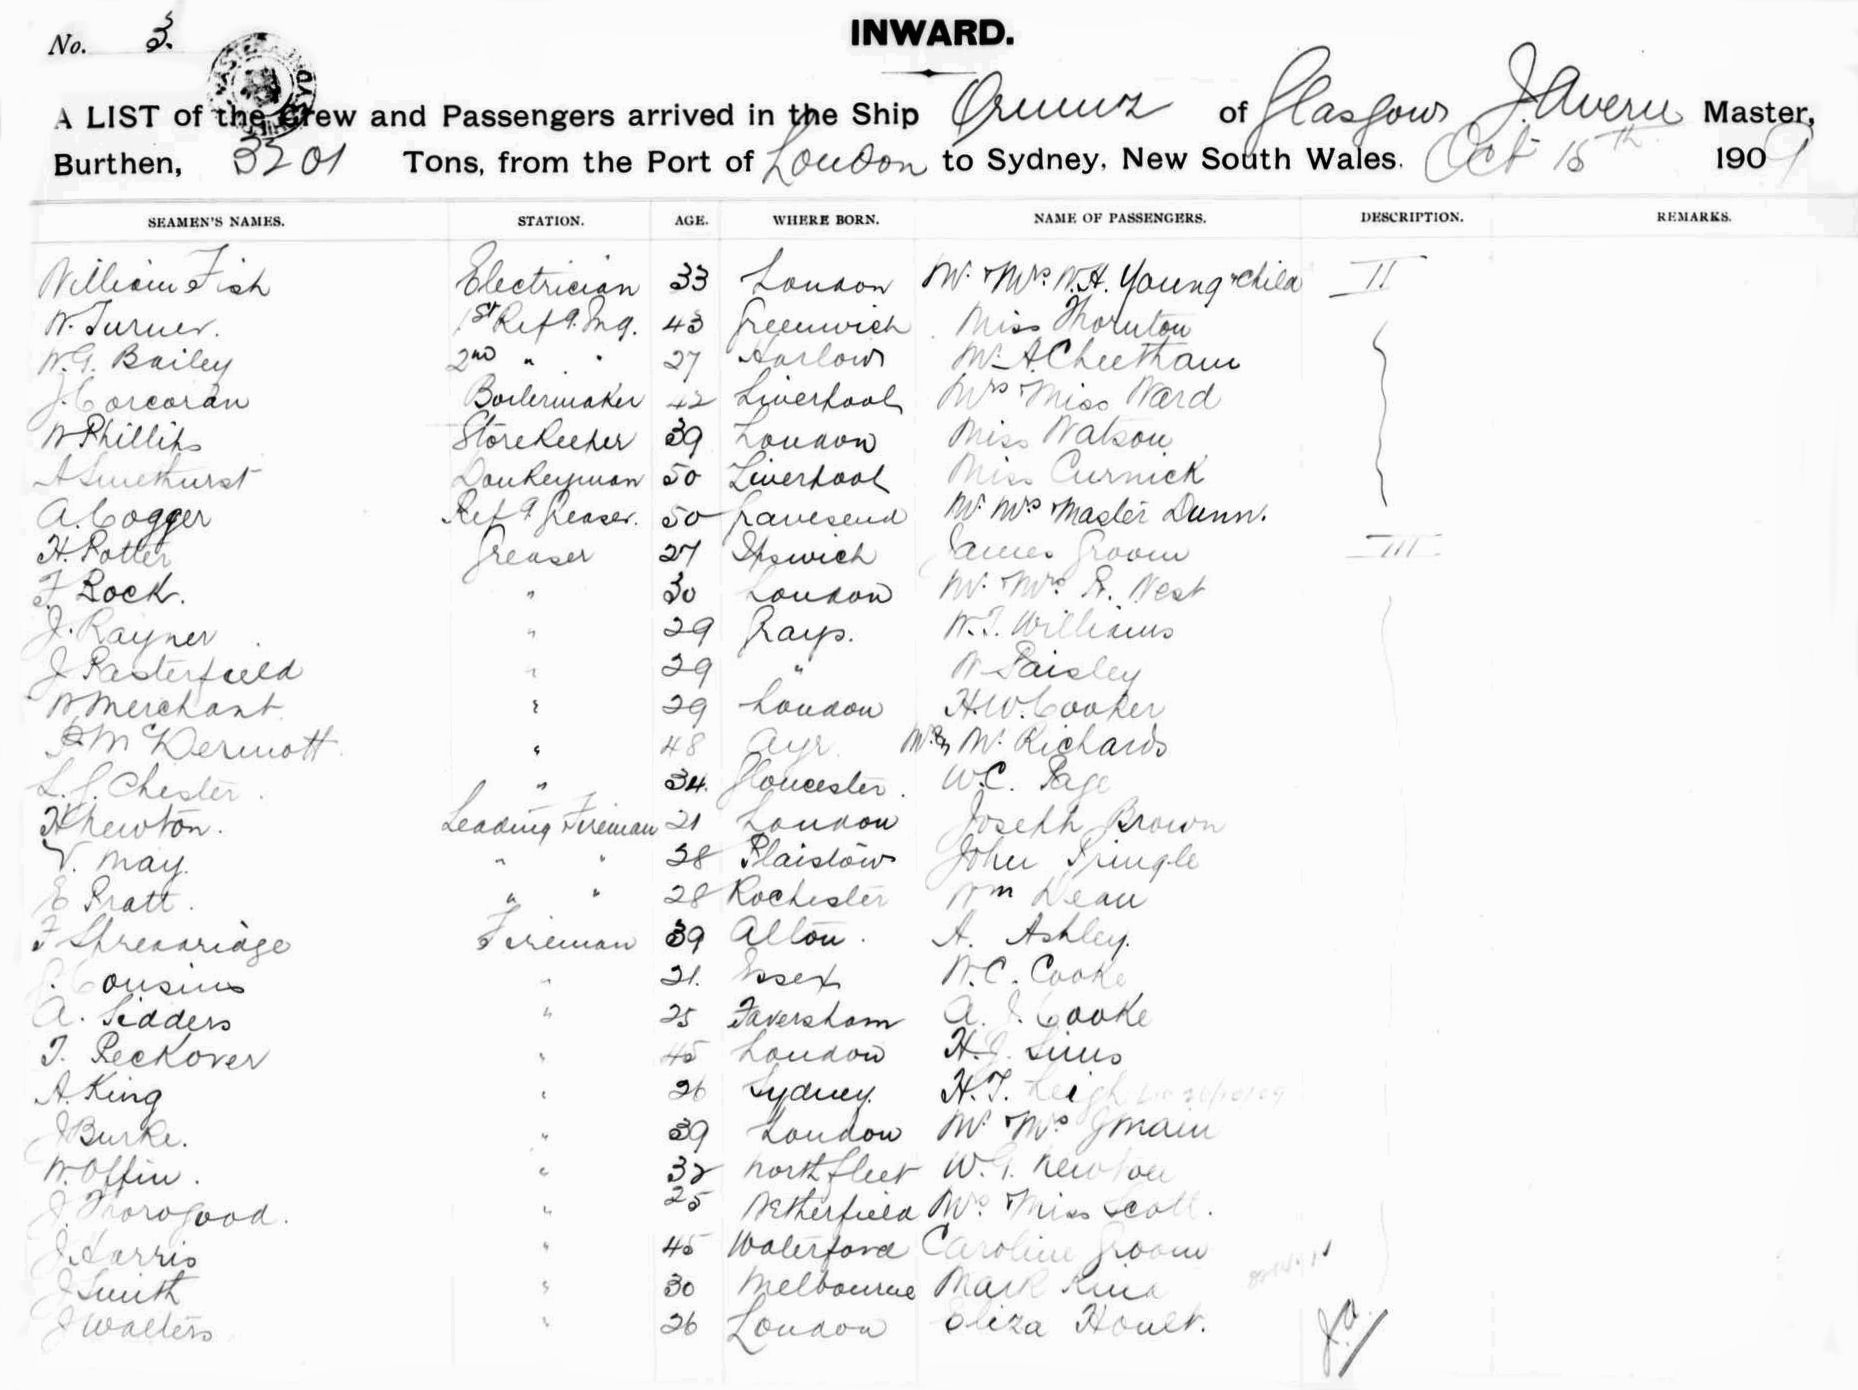 No. 3.
INWARD.
A LIST of the Crew and Passengers arrived in the Ship Ormuz of Glasgow J. Avern Master,
Burthen, 3201 Tons, from the Port of London to Sydney, New South Wales. Oct 15th 1909
SEAMEN'S NAMES. STATION. AGE. WHERE BORN. NAME OF PASSENGERS. DESCRIPTION. REMARKS.
William Fish Electrician 33 London Mr & Mrs W.H. Young & child II
W. Turner. 1st Refg. Eng. 43 Greenwich Miss Thornton
W.G. Bailey 2nd " " 27 Harlow Mr A Cheetham
J. Corcoran Boilermaker 42 Liverpool Mrs & Miss Ward
W Phillips Storekeeper 39 London Miss Watson
A Smethurst Donkeyman 50 Liverpool Miss Curnick
A. Cogger Refg. Greaser. 50 Gravesend Mr Mrs & Master Dunn.
H. Potter Greaser 27 Ipswich James Groom III
F Rock. " 30 London Mr. & Mrs R. West
J. Rayner " 29 Grays. W.T. Williams
J Pasterfield " 29 " W Paisley
W Merchant " 29 London H.W. Cooker
P McDermott " 48 Ayr. Mr & Mrs Richards
L. J. Chester " 34. Gloucester. W.C. Page
H Newton. Leading Fireman 21 London Joseph Brown
V. May. " " 28 Plaistow John Pringle
E Pratt. " " 28 Rochester Wm Dean
F Spreadridge Fireman 39 Alton. A. Ashley.
J. Cousins " 21. Essex W.C. Cooke
A. Sidders " 25 Faversham A. J. Cooke
T. Peckover " 45 London H.J. Sims
A. King " 26 Sydney. H.T. Leigh
J Burke. " 39 London Mr & Mrs J Main
W. Offin. " 32 Northfleet W.G. Newton
J. Thorogood. " 25 Netherfield Mrs & Miss Scott.
J. Harris " 45 Waterford Caroline Groom
J Smith " 30 Melbourne Mark King
J Walters " 26 London Eliza Hoult.